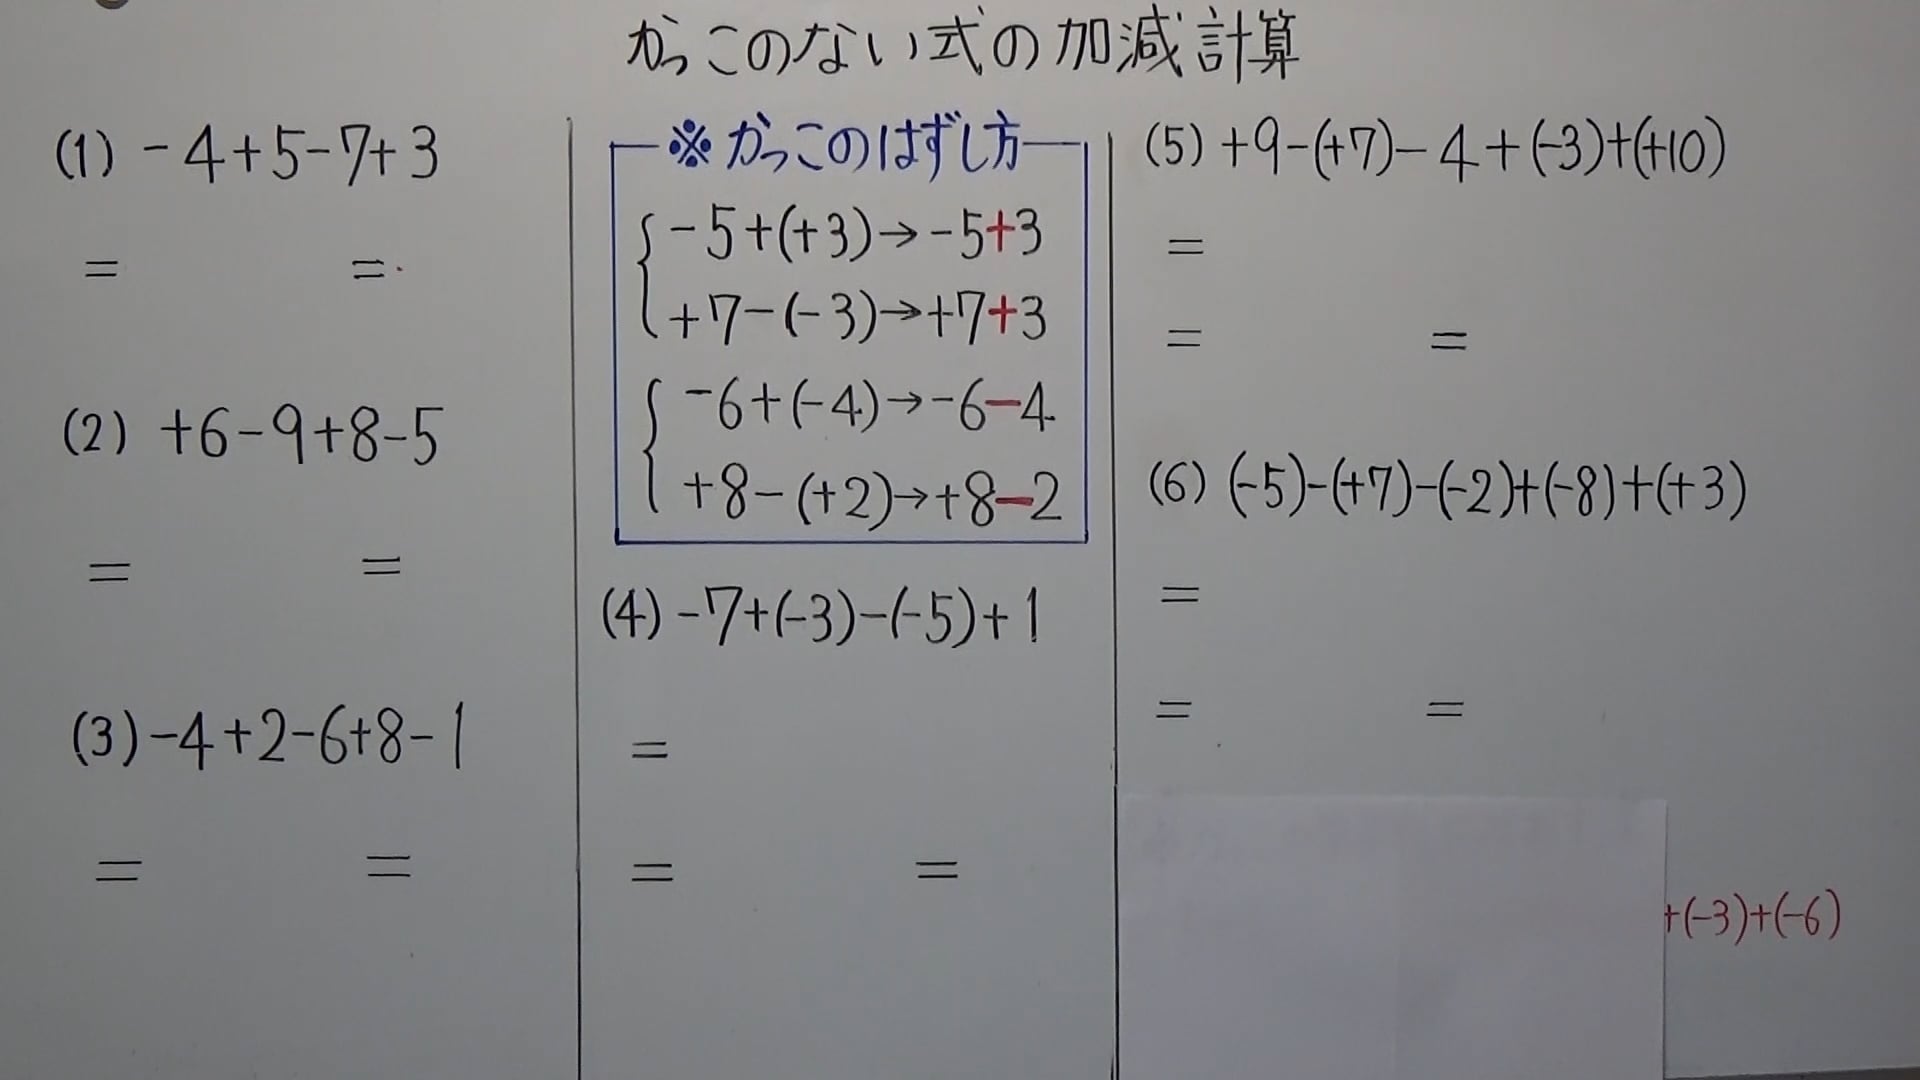 かっこのない式の加減計算
(1) -4+5-7+3
= =
(2) +6-9+8-5
= =
(3) -4+2-6+8-1
= =
※かっこのはずし方
-5+(+3)→-5+3
+7-(-3)→+7+3
-6+(-4)→-6-4
+8-(+2)→+8-2
(4) -7+(-3)-(-5)+1
=
= =
(5) +9-(+7)-4+(-3)+(+10)
=
= =
(6) (-5)-(+7)-(-2)+(-8)+(+3)
=
= =
+(-3)+(-6)